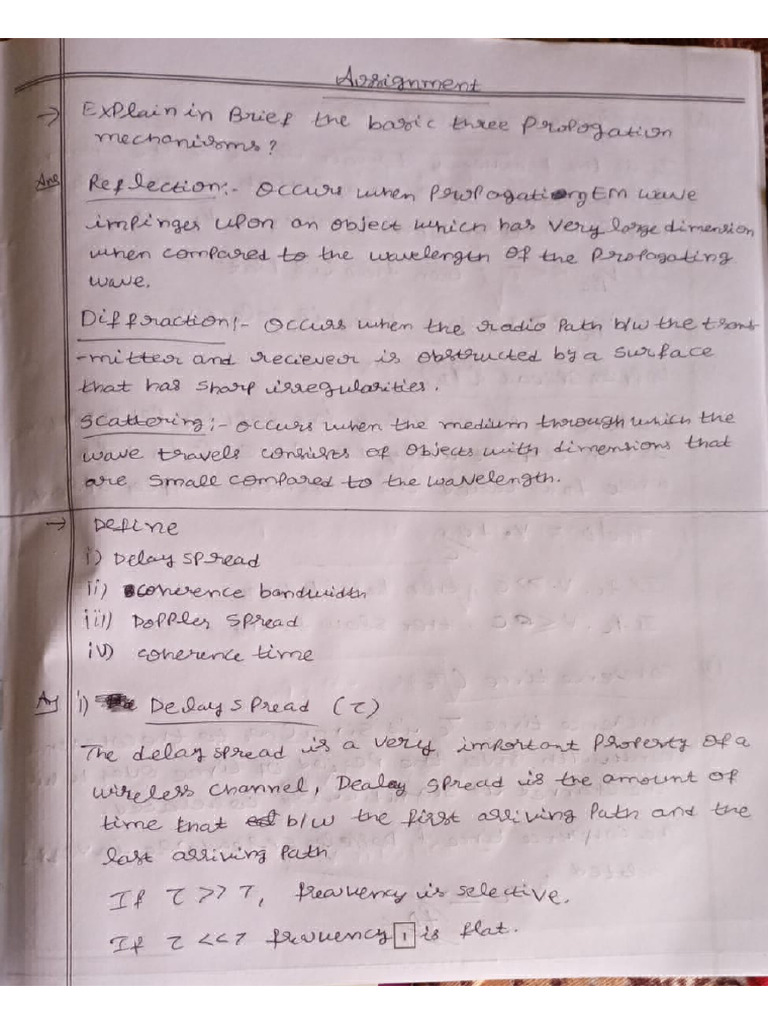 Assignment
→ Explain in Brief the basic three Propogation
mechanisms?
Ans Reflection:- Occurs when Propogating EM wave
impinges upon an object which has very large dimension
when compared to the wavelength of the Propagating
wave.
Diffraction:- Occurs when the radio Path b/w the trans
-mitter and reciever is obstructed by a surface
that has sharp irregularities.
Scattering:- occurs when the medium through which the
wave travels consists of objects with dimensions that
are small compared to the wavelength.
→ Define
i) Delay spread
ii) coherence bandwidth
iii) Doppler spread
iv) coherence time
Ans i) Delay spread (τ)
The delay spread is a very important Property of a
wireless channel, Dealay spread is the amount of
time that b/w the first arriving Path and the
last arriving Path
If τ >> T, frequency is selective.
If τ << T frequency 1 is flat.